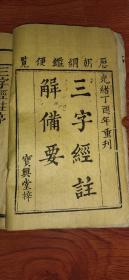 歷朝綱鑑便覽
光緒丁酉年重刊
三字經註
解備要
寶興堂梓
三字經註